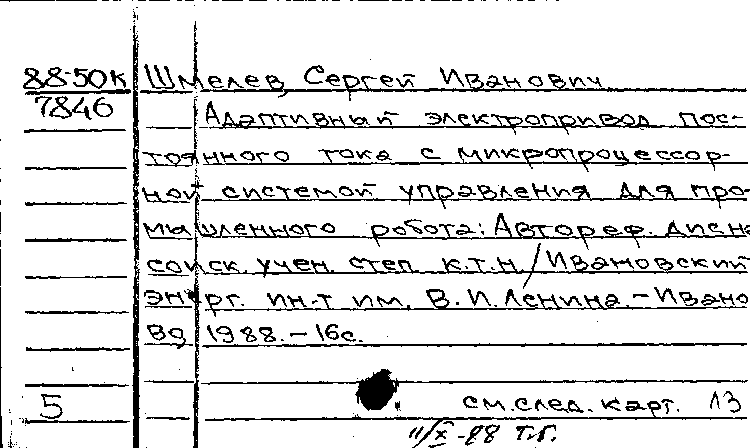 88-50к Шмелев, Сергей Иванович
7846 Адаптивный электропривод пос-
тоянного тока с микропроцессор-
ной системой управления для про-
мышленного робота: Автореф. дис на
соиск. учен. степ. к.т.н. / Ивановский
энерг. ин-т им. В.И. Ленина. - Ивано
во, 1988. - 16 с.
5 см. след. карт. 13
11/X-88 Т.Г.